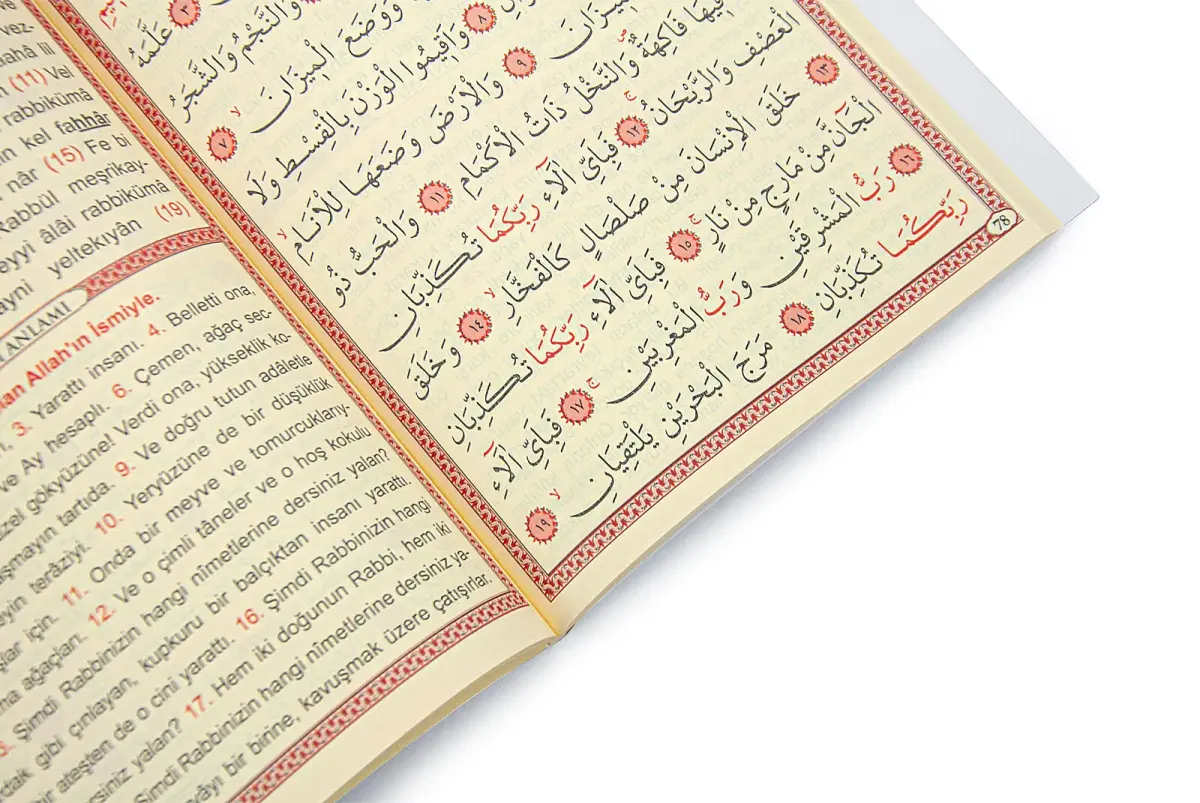 lil
(11) Vel
rabbikümâ
kel fahhâr
nâr (15) Fe bi
Rabbül meşrikay-
âlâi rabbikümâ
yeltekıyân (19)
ANLAMI
Allah'ın İsmiyle.
3. Yarattı insanı. 4. Belletti ona,
ve Ay hesaplı. 6. Çemen, ağaç sec-
gökyüzüne! Verdi ona, yükseklik ko-
tartıda. 9. Ve doğru tutun adâletle
terâziyi. 10. Yeryüzüne de bir düşüklük
için. 11. Onda bir meyve ve tomurcuklarıy-
ağaçları. 12. Ve o çimli tâneler ve o hoş kokulu
Şimdi Rabbinizin hangi nîmetlerine dersiniz yalan?
gibi çınlayan, kupkuru bir balçıktan insanı yarattı.
ateşten de o cini yarattı. 16. Şimdi Rabbinizin hangi
yalan? 17. Hem iki doğunun Rabbi, hem iki
Şimdi Rabbinizin hangi nîmetlerine dersiniz ya-
bir birine, kavuşmak üzere çatışırlar.
٣ عَلَّمَهُ
وَالنَّجْمُ وَالشَّجَرُ
وَوَضَعَ الْمِيزَانَ ٧
٨ وَاَقِيمُوا الْوَزْنَ بِالْقِسْطِ وَلَا
الْمِيزَانَ ٩ وَالْاَرْضَ وَضَعَهَا لِلْاَنَامِ
فِيهَا فَاكِهَةٌ وَالنَّخْلُ ذَاتُ الْاَكْمَامِ ١١ وَالْحَبُّ ذُو
الْعَصْفِ وَالرَّيْحَانُ ١٢ فَبِاَيِّ اٰلَٓاءِ رَبِّكُمَا تُكَذِّبَانِ
١٣ خَلَقَ الْاِنْسَانَ مِنْ صَلْصَالٍ كَالْفَخَّارِ ١٤ وَخَلَقَ
الْجَٓانَّ مِنْ مَارِجٍ مِنْ نَارٍ ١٥ فَبِاَيِّ اٰلَٓاءِ رَبِّكُمَا تُكَذِّبَانِ
١٦ رَبُّ الْمَشْرِقَيْنِ وَرَبُّ الْمَغْرِبَيْنِ ١٧ فَبِاَيِّ اٰلَٓاءِ
رَبِّكُمَا تُكَذِّبَانِ ١٨ مَرَجَ الْبَحْرَيْنِ يَلْتَقِيَانِ ١٩
78